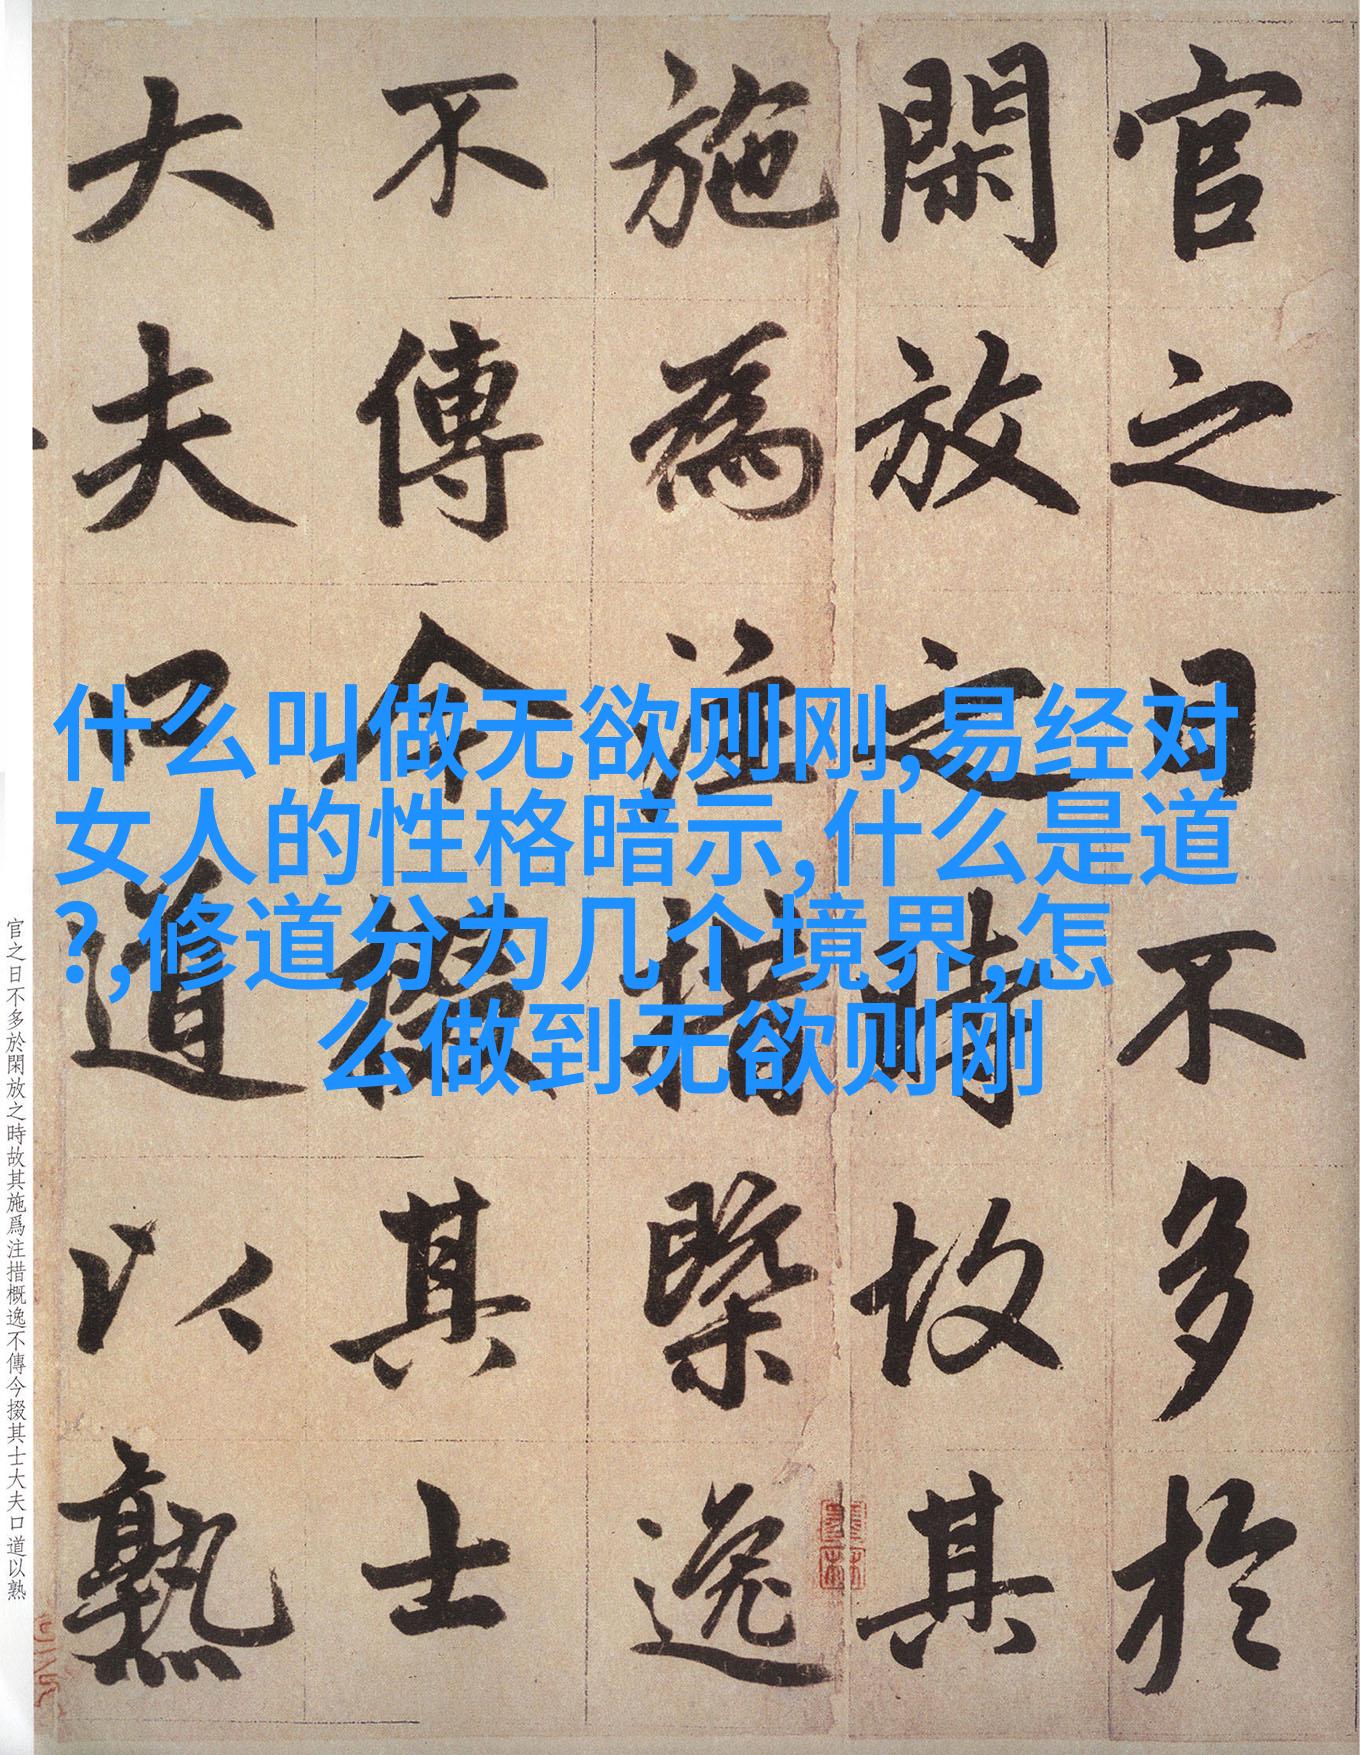 官之日不多於
閑放之時故其
施為注措槩逸
不傳今掇其士
大夫口道以熟
什么叫做无欲则刚,易经对
女人的性格暗示,什么是道
?,修道分为几个境界,怎
么做到无欲则刚
官之日不多於閑放之時故其施爲注措概逸不傳今掇其士大夫口道以熟